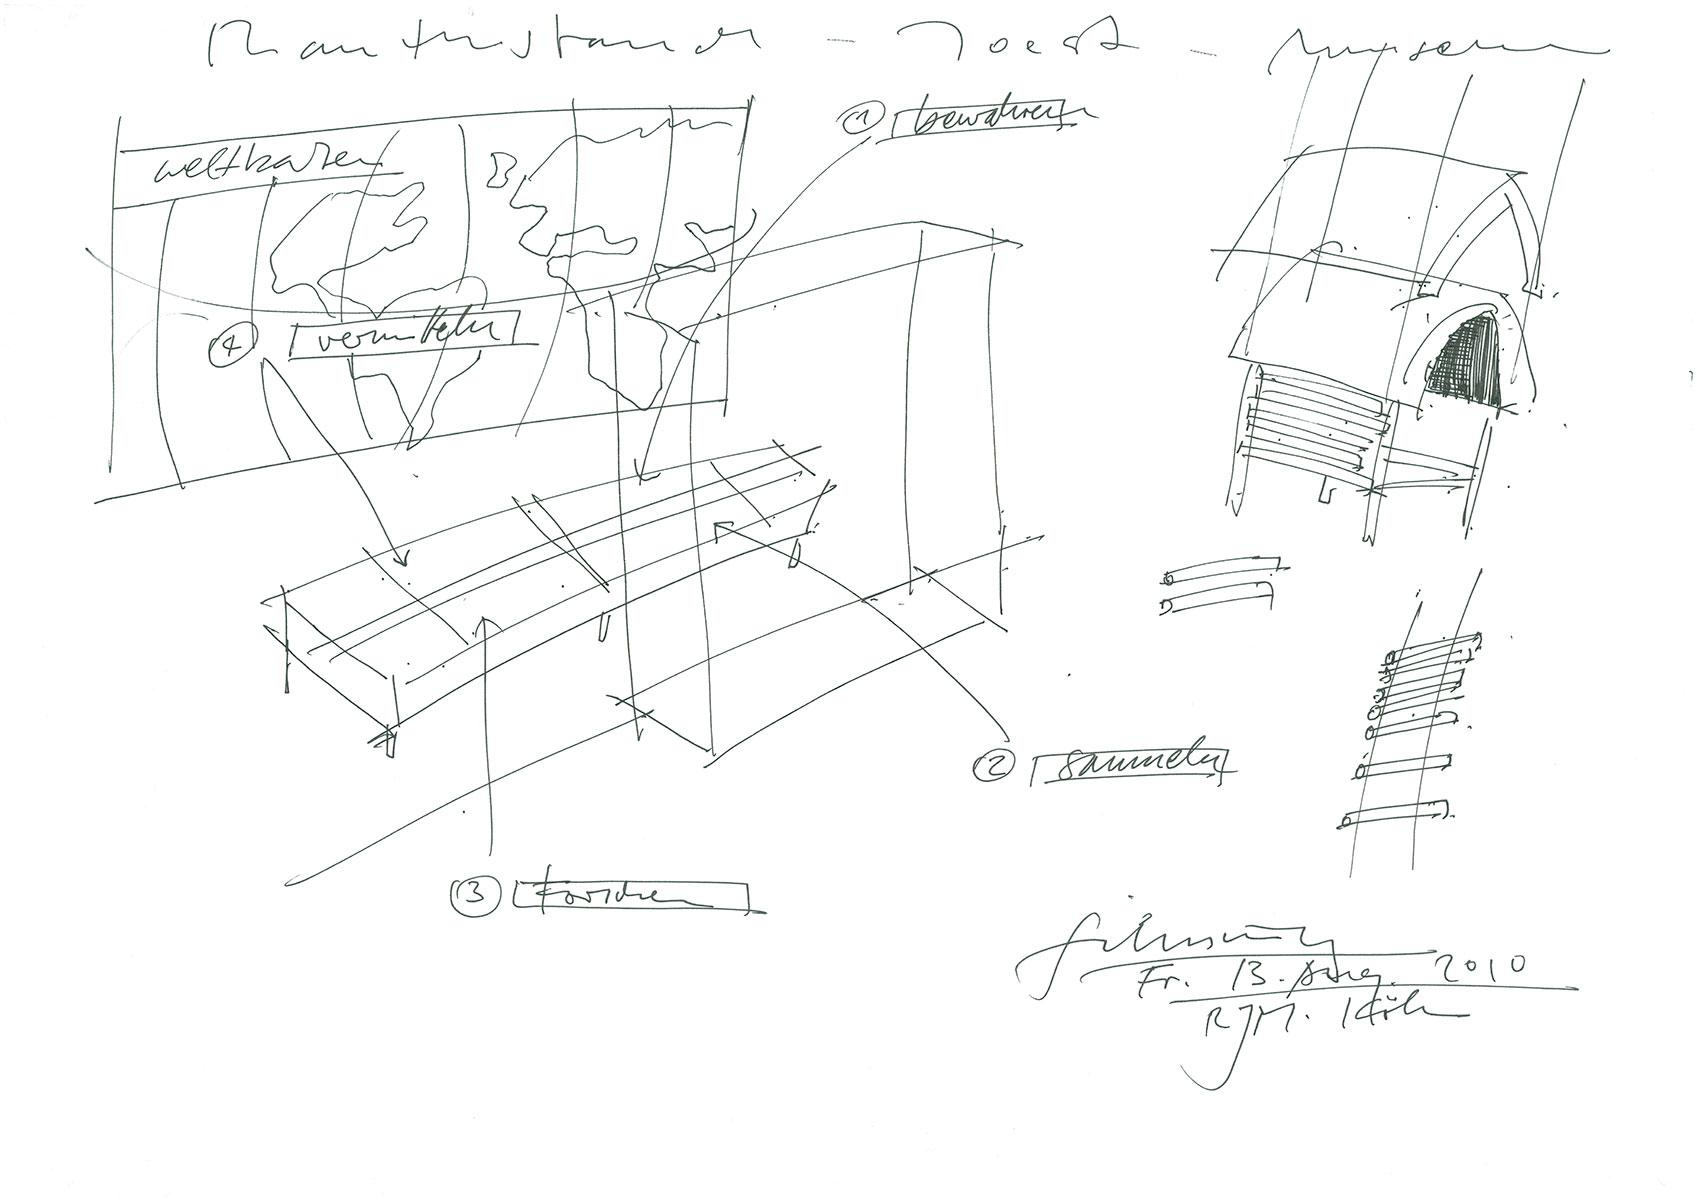 Rautenstrauch - Joest - Museum
① bewahren
weltkarten
④ vermitteln
② sammeln
③ forschen
Fr. 13. Aug. 2010
RJM. Köln